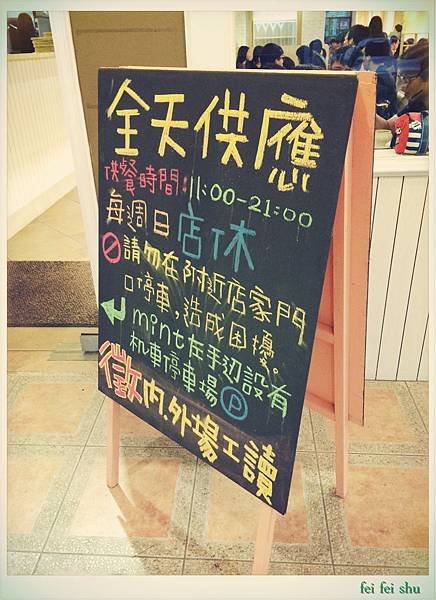 全天供應
供餐時間:11:00-21:00
每週日店休
請勿在附近店家門
口停車,造成困擾。
mint左手边設有
机車停車場P
徵內.外場工讀
fei fei shu